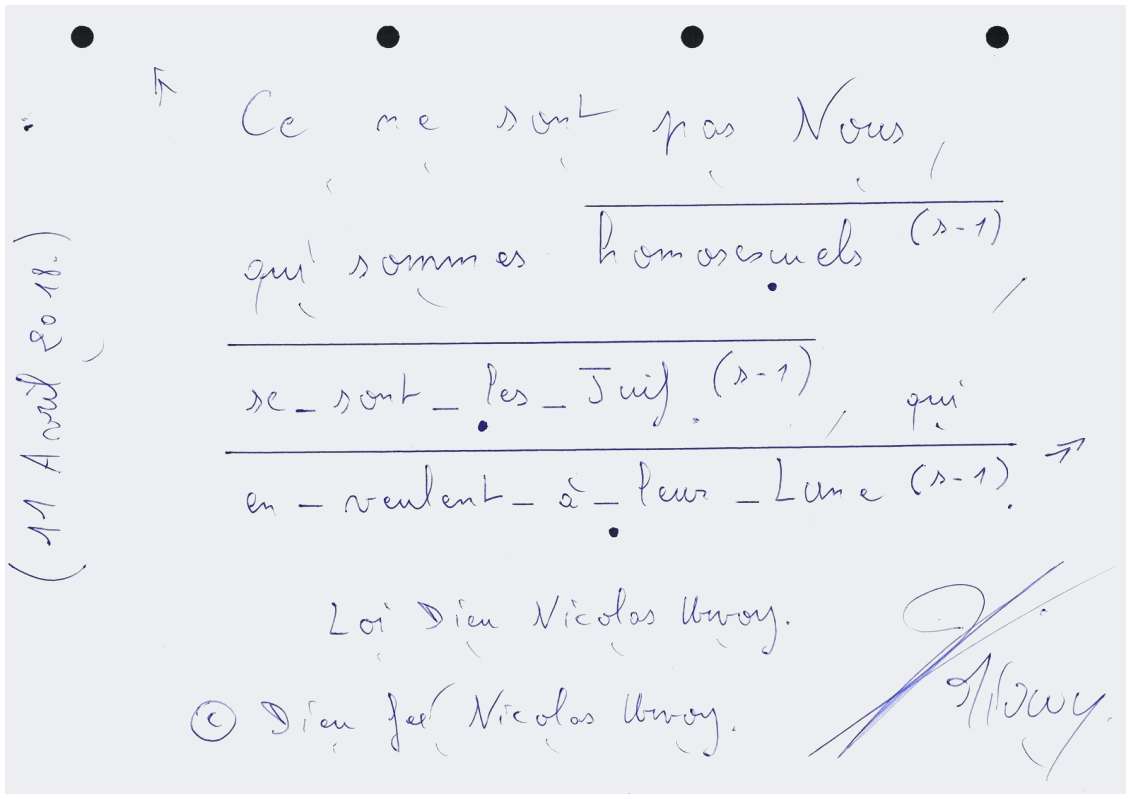 Ce ne sont pas Nous,
qui sommes homosexuels (s-1),
se_sont_les_Juif (s-1), qui
en_veulent_à_leur_Lune (s-1).
Loi Dieu Nicolas Urvoy.
© Dieu Nicolas Urvoy.
(11 Avril 2018.)